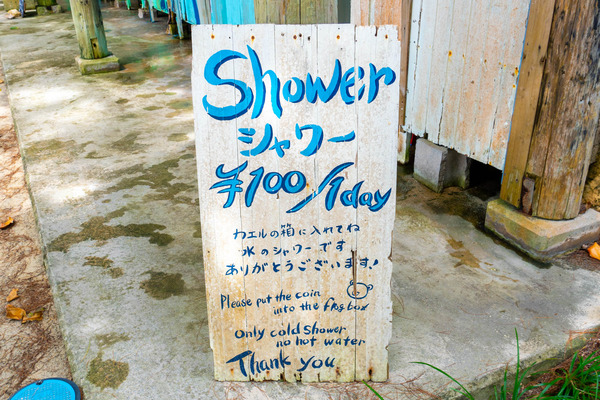 Shower
シャワー
¥100/1day
カエルの箱に入れてね
水のシャワーです
ありがとうございます!
Please put the coin
into the frog box
Only cold shower
no hot water
Thank you